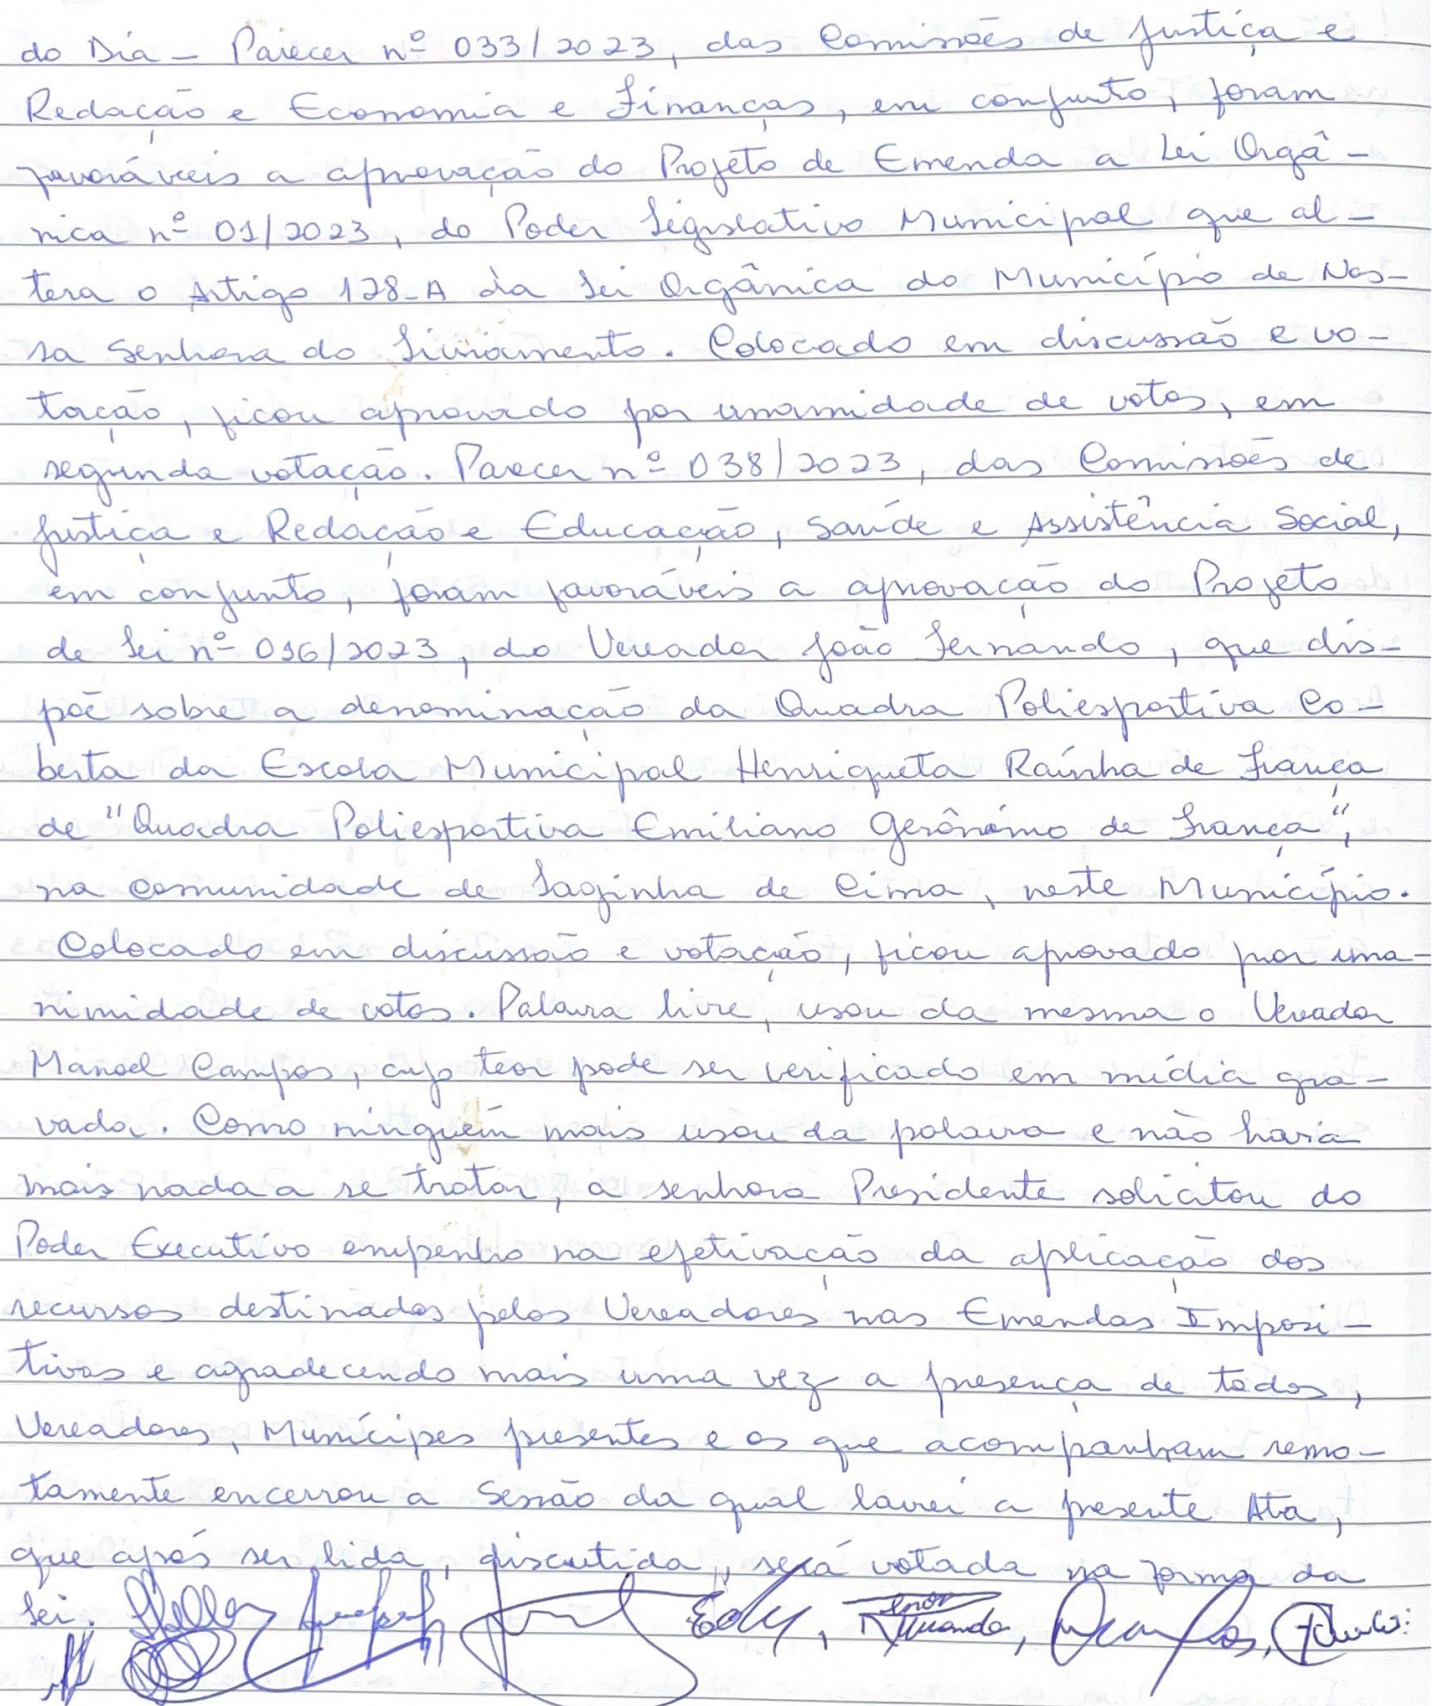 do Dia - Parecer nº 033/2023, das Comissões de Justiça e
Redação e Economia e Finanças, em conjunto, foram
favoráveis a aprovação do Projeto de Emenda a Lei Orgâ-
nica nº 01/2023, do Poder Legislativo Municipal que al-
tera o Artigo 128-A da Lei Orgânica do Município de Nos-
sa Senhora do Livramento. Colocado em discussão e vo-
tação, ficou aprovado por unamidade de votos, em
segunda votação. Parecer nº 038/2023, das Comissões de
Justiça e Redação e Educação, Saúde e Assistência Social,
em conjunto, foram favoráveis a aprovação do Projeto
de Lei nº 016/2023, do Vereador João Fernando, que dis-
põe sobre a denominação da Quadra Poliesportiva Co-
berta da Escola Municipal Henriqueta Raínha de França
de "Quadra Poliesportiva Emiliano Gerônimo de França",
na comunidade de Laginha de Cima, neste Município.
Colocado em discussão e votação, ficou aprovado por una-
nimidade de votos. Palavra livre, usou da mesma o Vereador
Manoel Campos, cujo teor pode ser verificado em mídia gra-
vada. Como ninguém mais usou da palavra e não havia
mais nada a se tratar, a senhora Presidente solicitou do
Poder Executivo empenho na efetivação da aplicação dos
recursos destinados pelos Vereadores nas Emendas Imposi-
tivas e agradecendo mais uma vez a presença de todos,
Vereadores, Munícipes presentes e os que acompanham remo-
tamente encerrou a Sessão da qual lavrei a presente Ata,
que após ser lida, discutida, será votada na forma da
Lei.